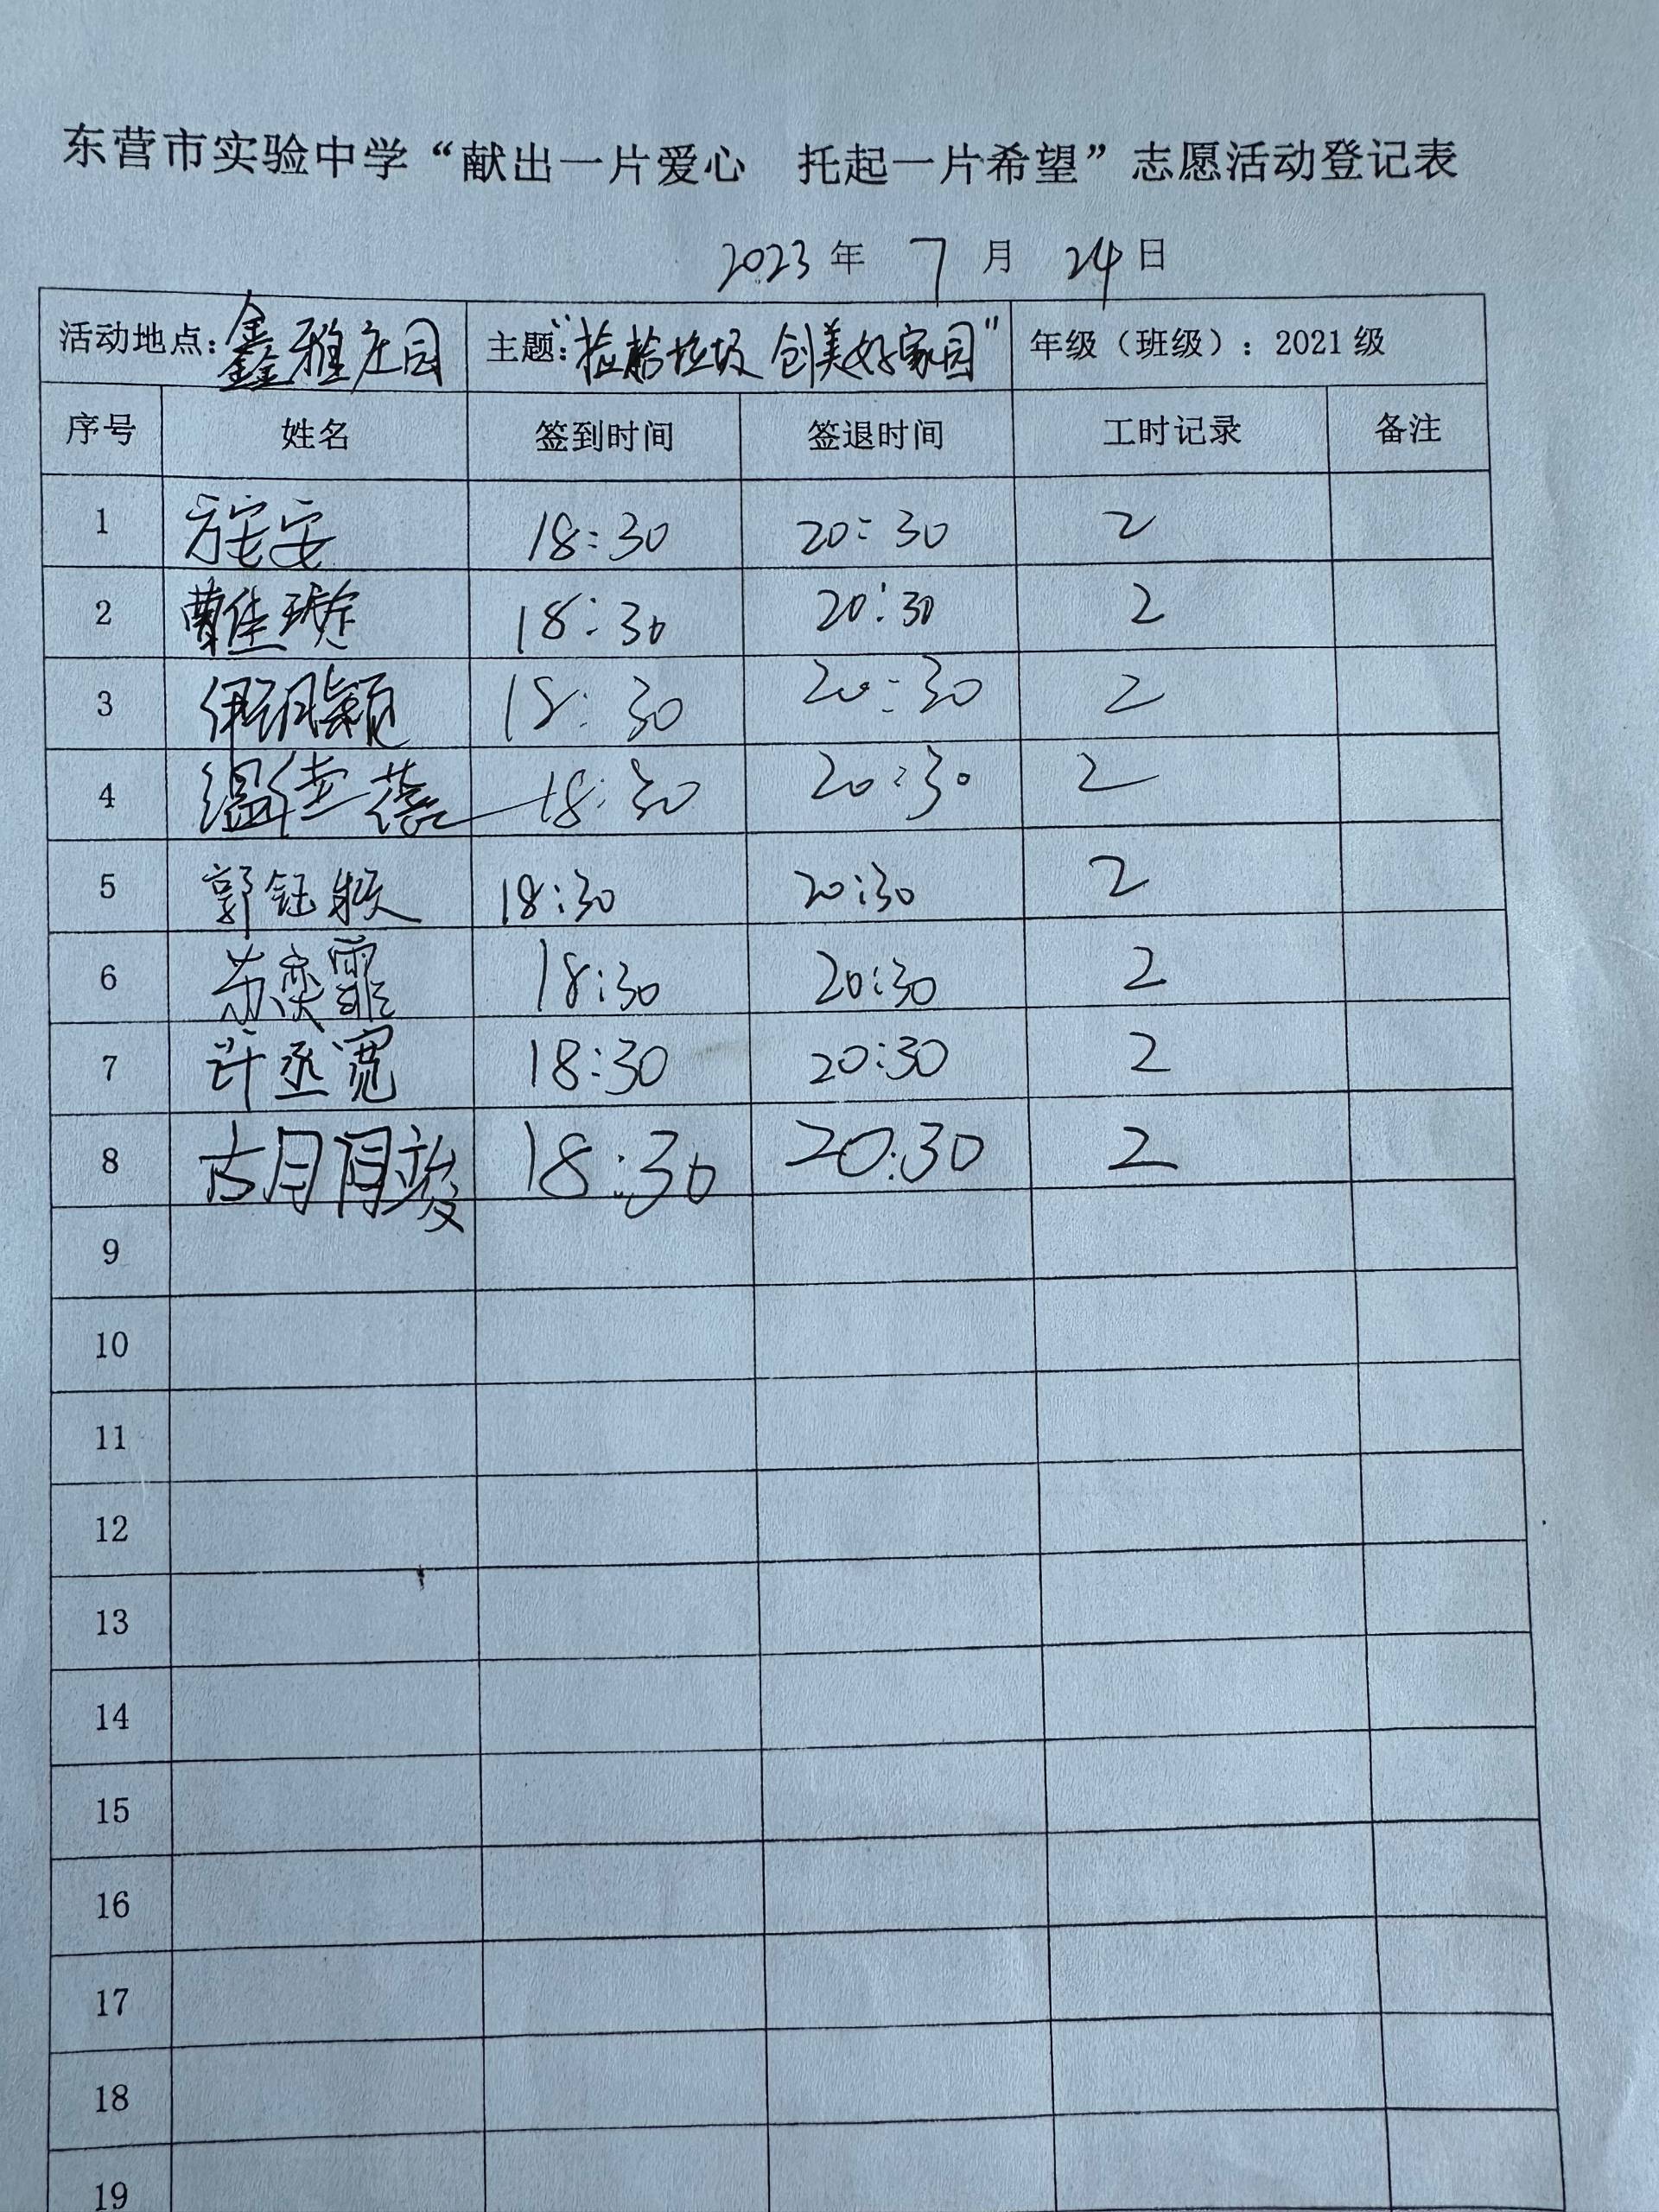 东营市实验中学“献出一片爱心 托起一片希望”志愿活动登记表
2023年 7月 24日
活动地点：鑫雅庄园 主题：“捡拾垃圾 创美好家园” 年级（班级）：2021级
序号 姓名 签到时间 签退时间 工时记录 备注
1 18:30 20:30 2
2 曹佳璇 18:30 20:30 2
3 18:30 20:30 2
4 温佳蓓 18:30 20:30 2
5 郭钰 18:30 20:30 2
6 苏奕霏 18:30 20:30 2
7 许丞宽 18:30 20:30 2
8 胡 竣 18:30 20:30 2
9
10
11
12
13
14
15
16
17
18
19